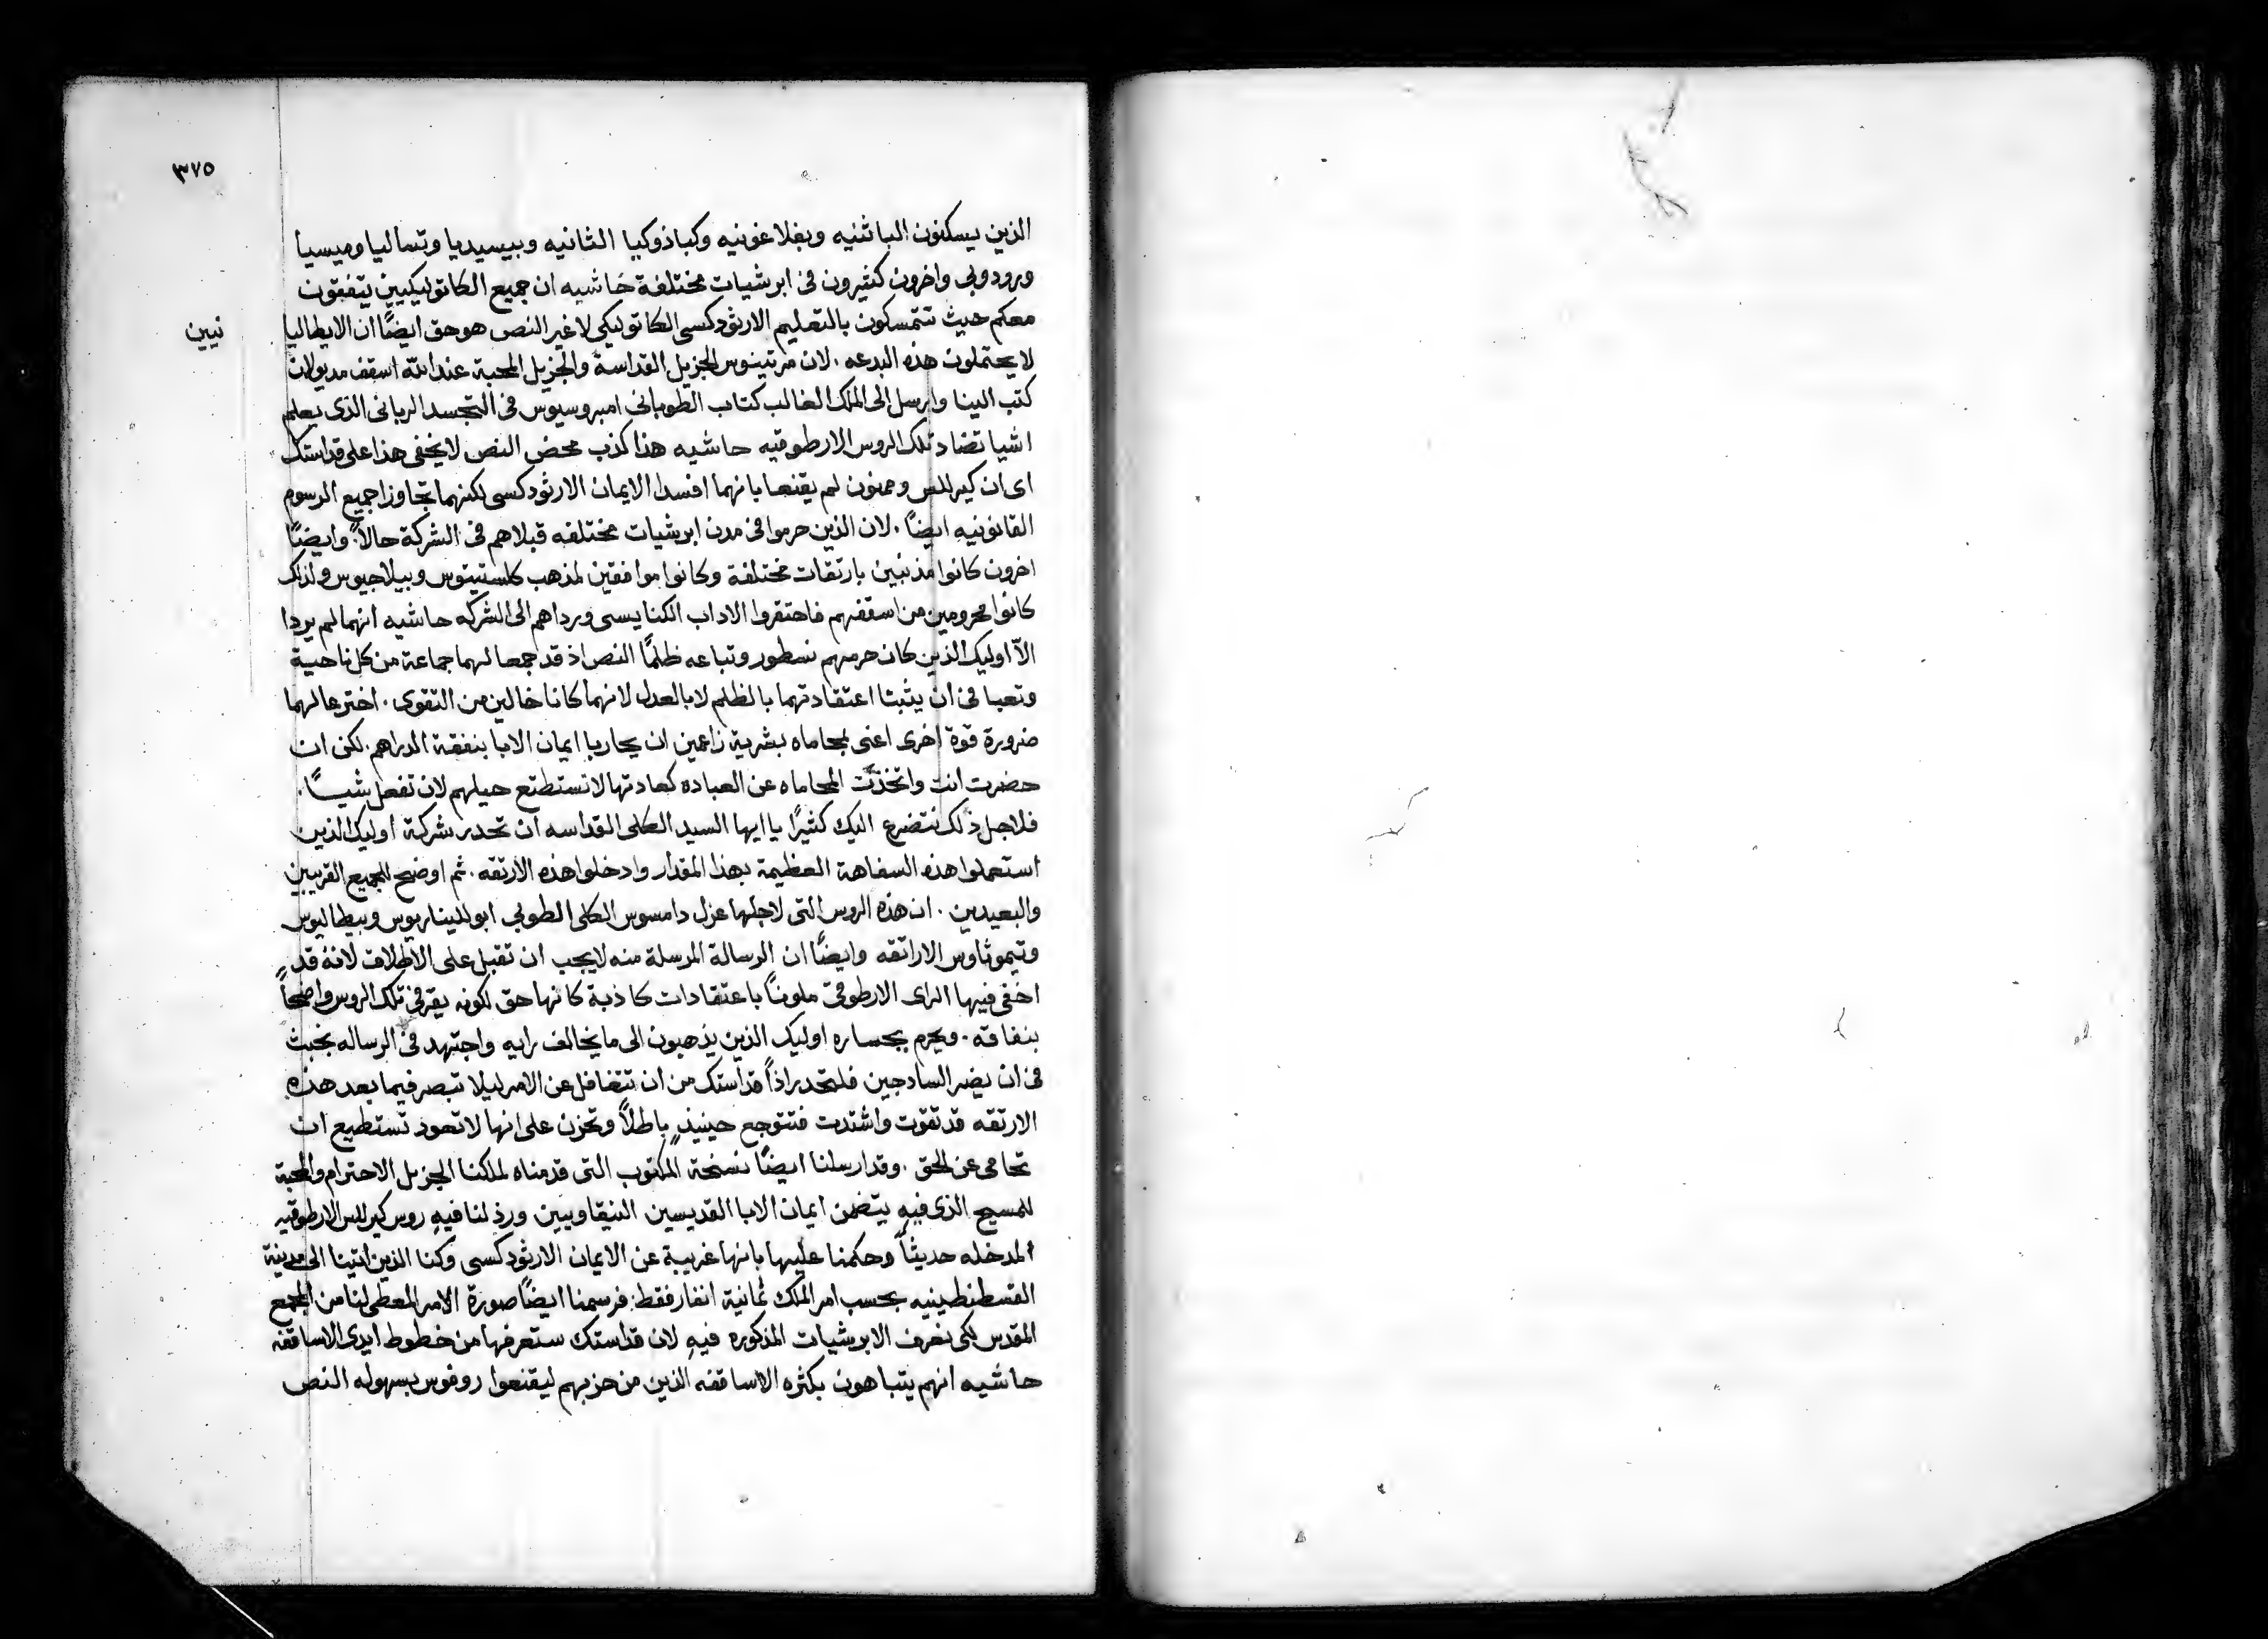 ٣٧٥
الذين يسكنون الباثنيه وبفلاغونيه وكباذوكيا الثانيه وبيسيديا وتساليا وميسيا
ورودوبي واخرون كثيرون في ابرشيات مختلفة حاشيه ان جميع الكاتوليكيين يتفقون
معكم حيث تتمسكون بالتعليم الارثودكسي الكاتوليكي لا غير النص هو حق ايضًا ان الايطاليا
نيين
لا يحتملون هذه البدعه . لان مرتينوس الجزيل القداسة والجزيل المحبة عند الله اسقف مديولان
كتب الينا وارسل الى الملك الغالب كتاب الطوباني امبروسيوس في التجسد الرباني الذي يعلم
اشيا تضاد تلك الروس الارطوقيه حاشيه هذا كذب محض النص لا يخفى هذا على قداستك
اى ان كيرللس وممنون لم يقنعا بانهما افسدا الايمان الارثودكسي لكنهما تجاوزا جميع الرسوم
القانونيه ايضًا . لان الذين حرموا في مدن ابرشيات مختلفه قبلاهم في الشركة حالاً . وايضًا
اخرون كانوا مذنبين بارتقات مختلفة وكانوا موافقين لمذهب كلستيتوس وبيلاجيوس ولذلك
كانوا محرومين من اسقفهم فاحتقروا الاداب الكنايسى ورداهم الى الشركه حاشيه انهما لم يردا
الاّ اوليك الذين كان حرمهم نسطور وتباعه ظلمًا النص اذ قد جمعا لهما جماعة من كل ناحية
وتعبا في ان يثبتا اعتقادتهما بالظلم لا بالعدل لانهما كانا خاليين من التقوى . اخترعا لهما
ضرورة قوة اخرى اعنى لمحاماه بشرية زاعمين ان يحاربا ايمان الابا بنفقة الدراهم . لكن ان
حضرت انت واتخذت المحاماه عن العباده كعادتها لا تستطتع حيلهم لان تفعل شيـًا .
فلاجل ذلك نتضرع اليك كثيرًا يا ايها السيد الكلى القداسه ان تحدر شركة اوليك الذين
استعملوا هذه السفاهة العظيمة بهذا المقدار وادخلوا هذه الارتقه . ثم اوضح للجميع القريبين
والبعيدين . ان هذه الروس التى لاجلها عزل دامسوس الكلى الطوبي ابولليناريوس وبيطاليوس
وتيموثاوس الاراتقه وايضًا ان الرسالة المرسلة منه لا يجب ان تقبل على الاطلاق لانه قد
اخفى فيها الراى الارطوقى ملونًا باعتقادات كاذبة كانها حق لكونه يقر في تلك الروس واضحاً
بنفاقه . ويحرم بجساره اوليك الذين يذهبون الى ما يخالف رايه واجتهد في الرساله بخبث
في ان يضر السادجين فلتحدر اذاً قداستك من ان تتغافل عن الامر ليلا تبصر فيما بعد هذه
الارتقه قد تقوت واشتدت فتتوجع حينيذٍ باطلاً وتحزن على انها لا تعود تستطيع ان
تحامى عن الحق . وقد ارسلنا ايضًا نسخة المكتوب التى قدمناه لملكنا الجزيل الاحترام والمحبة
للمسيح الذى فيه يتضمن ايمان الابا القديسين النيقاويين ورذلنا فيه روس كيرللس الارطوقيه
المدخله حديثاً وحكمنا عليها بانها غريبة عن الايمان الارثودكسي وكنا الذين اتينا الى مدينة
القسطنطينيه بحسب امر الملك ثمانية انفار فقط : فرسمنا ايضًا صورة الامر المعطى لنا من المجمع
المقدس لكى نعرف الابرشيات المذكوره فيه لان قداستك ستعرفها من خطوط ايدى الاساقفه
حاشيه انهم يتباهون بكثره الاساقفه الذين من حزبهم ليقنعوا روفوس بسهوله النص